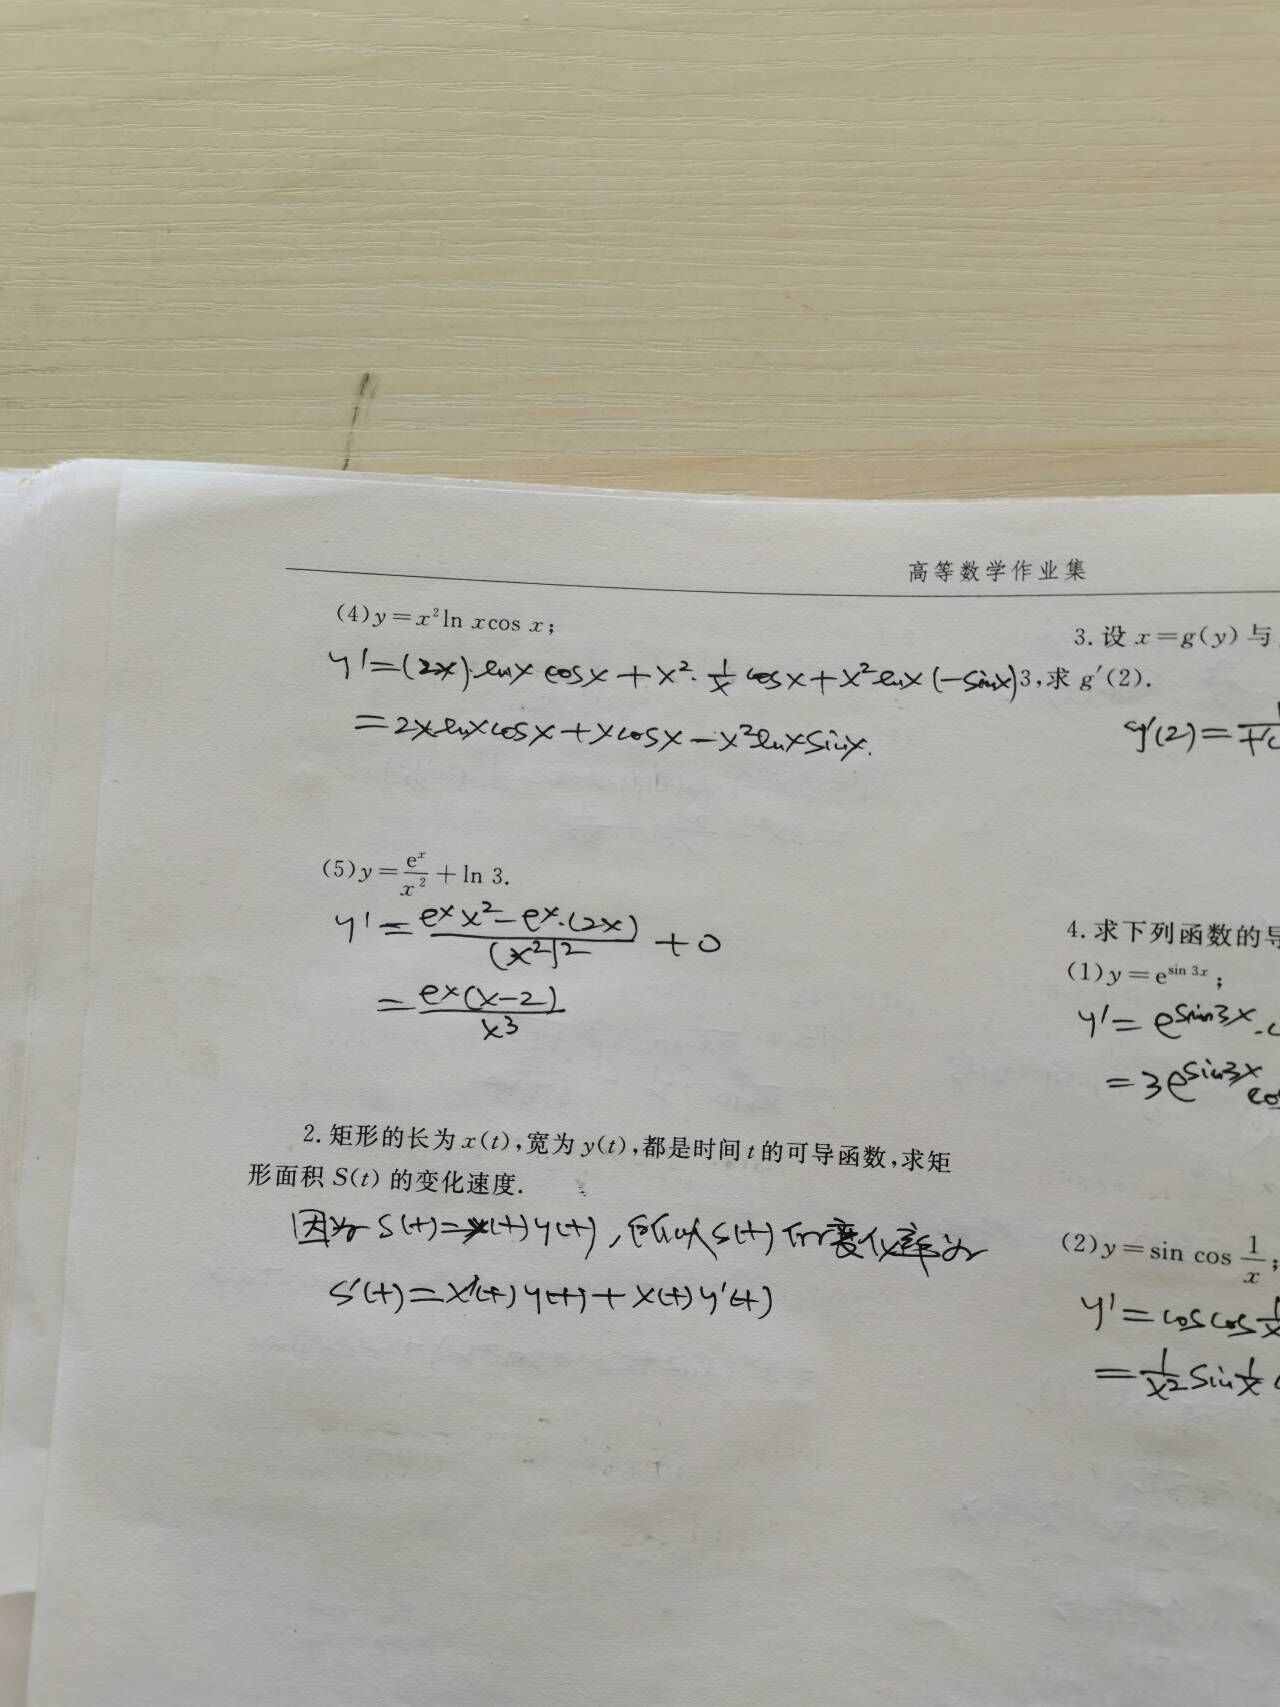 高等数学作业集
(4)y=x²ln xcos x;
y'=(2x)·lnx cosx+x²·1/x cosx+x²lnx(-sinx)
=2xlnxcosx+xcosx-x²lnxsinx.
(5)y=eˣ/x²+ln 3.
y'=(eˣx²-eˣ·(2x))/(x²)²+0
=eˣ(x-2)/x³
2.矩形的长为x(t),宽为y(t),都是时间t的可导函数,求矩
形面积S(t)的变化速度.
因为S(t)=x(t)y(t),所以S(t)的变化率为
S'(t)=x'(t)y(t)+x(t)y'(t)
3.设x=g(y)与
3,求g'(2).
g'(2)=
4.求下列函数的导
(1)y=e^(sin 3x);
y'=e^(sin3x)·c
=3e^(sin3x)cos
(2)y=sin cos 1/x;
y'=coscos1/x
=1/x² sin1/x